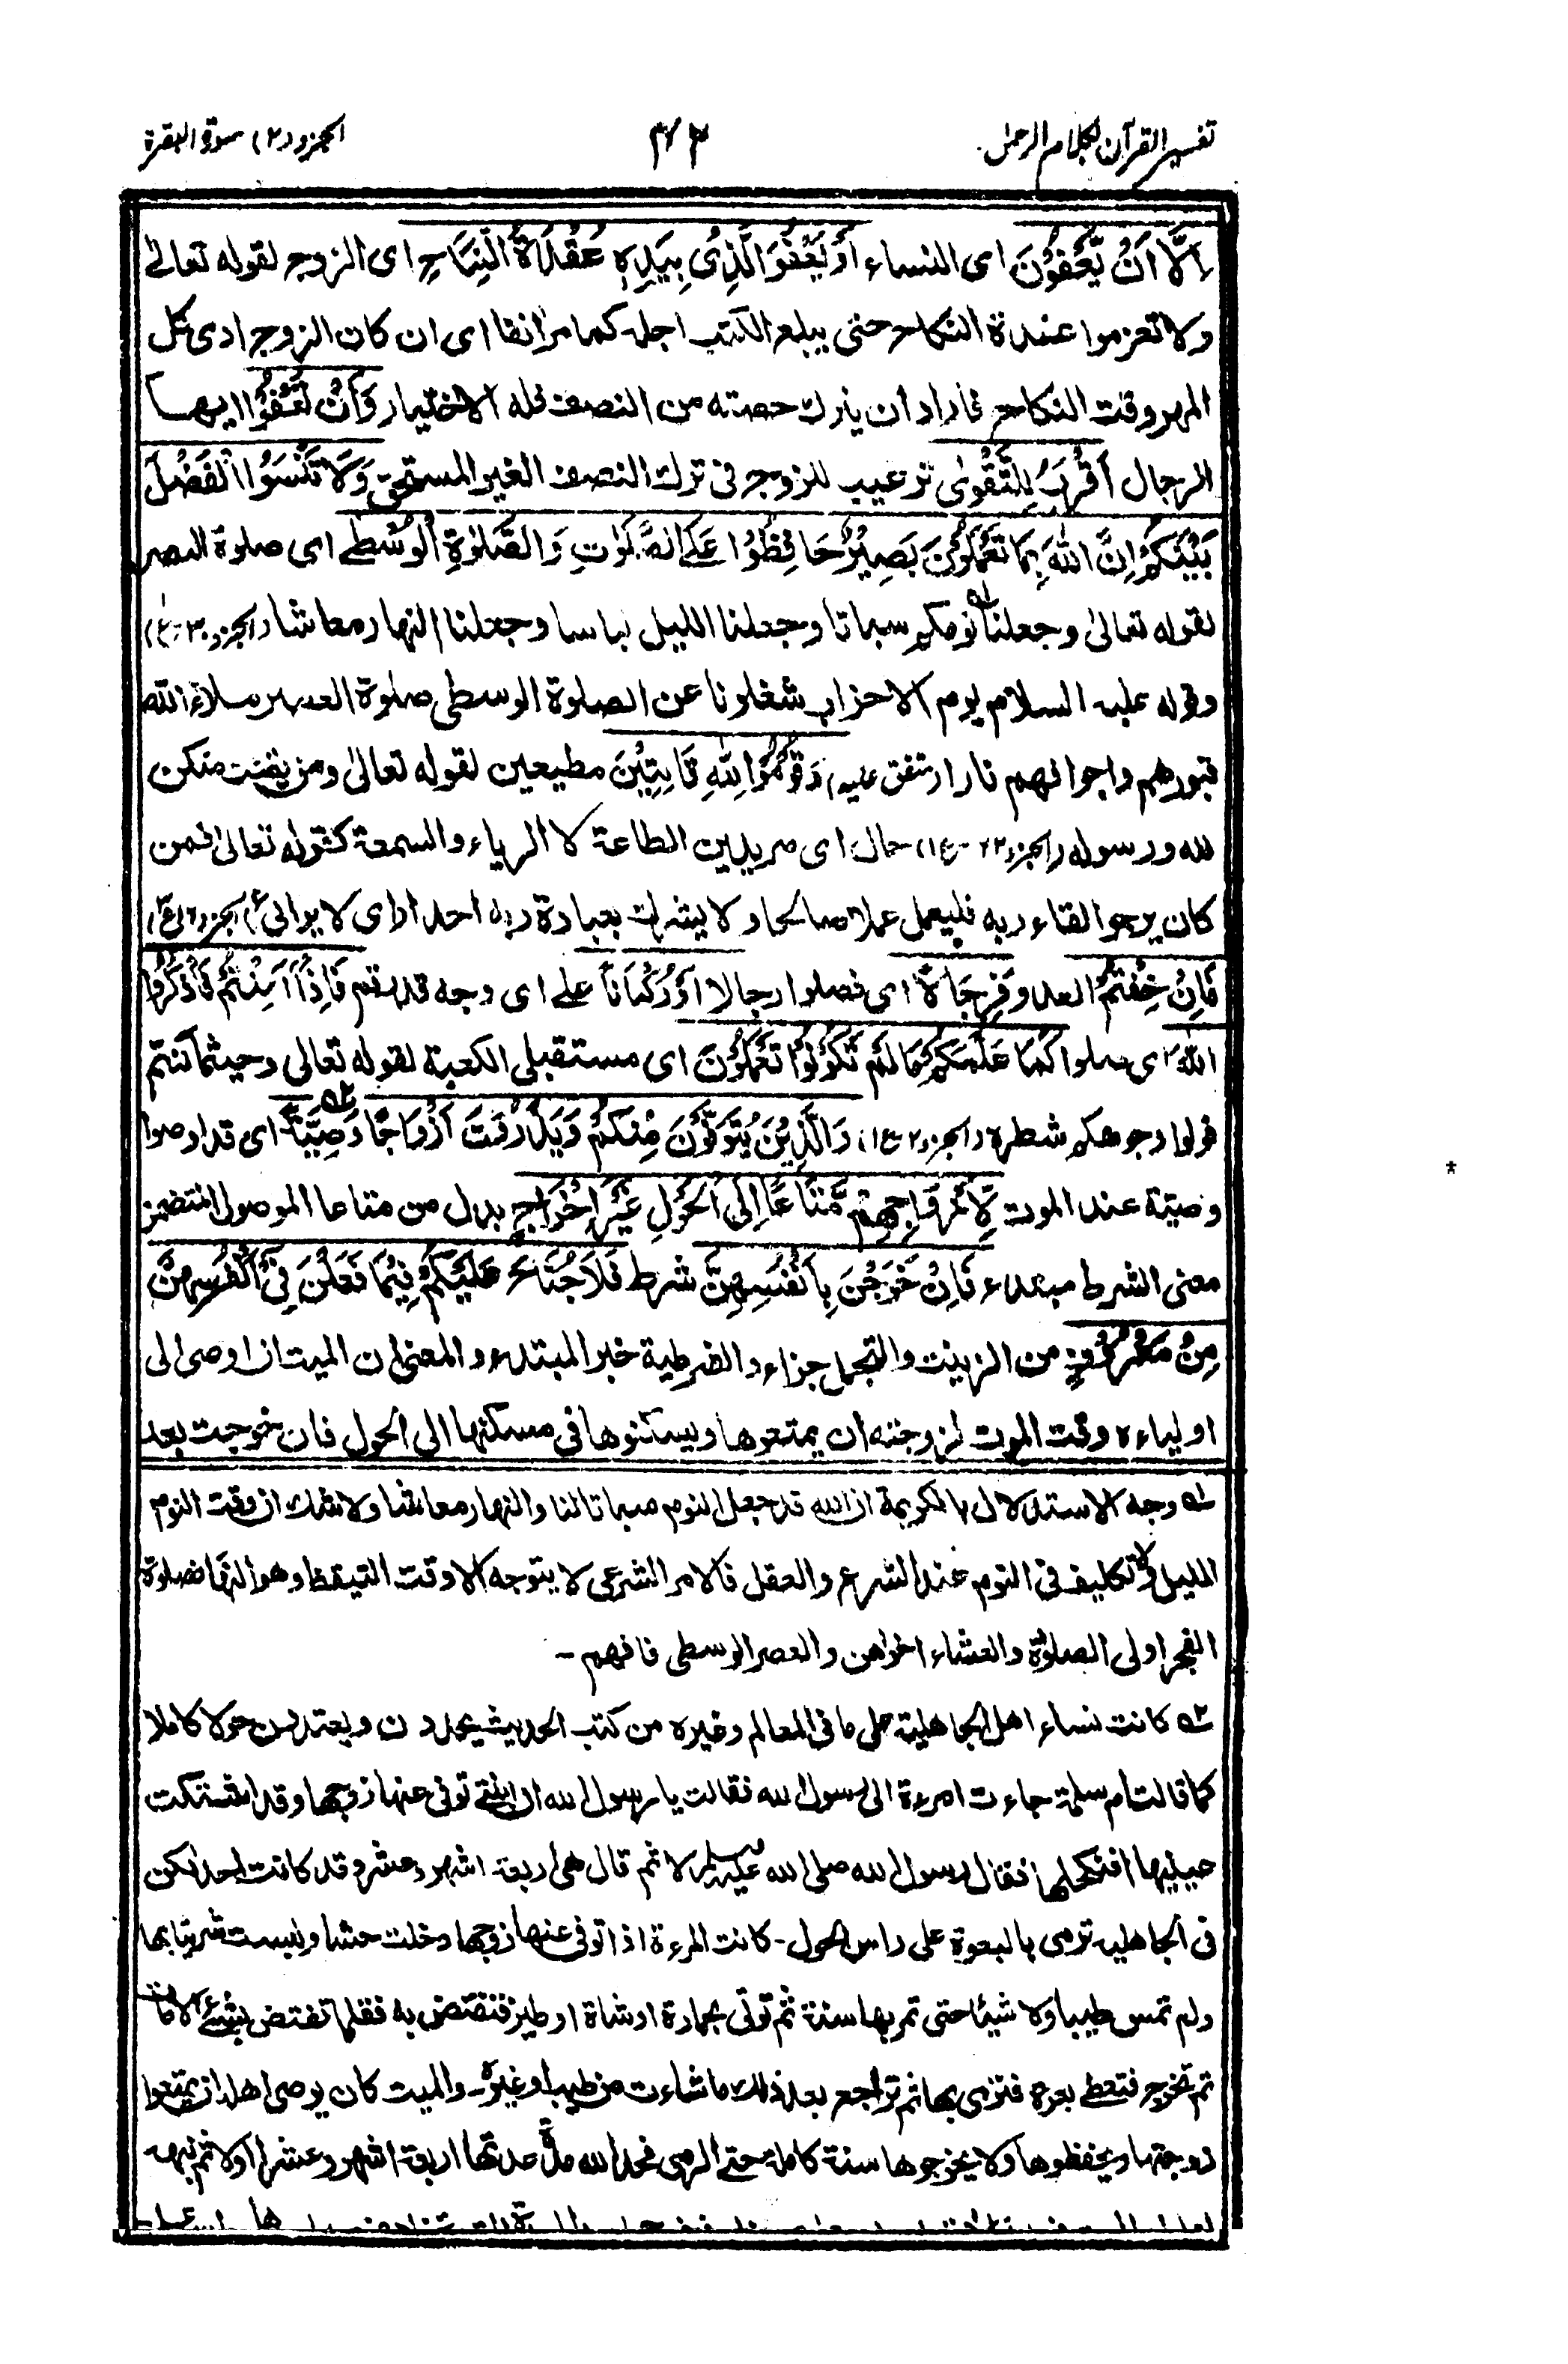 تفسير القرآن بكلام الرحمٰن
الجزو (٢) سورة البقرة
اِلَّا اَنْ يَّعْفُوْنَ اى النساء اَوْ يَعْفُوَا الَّذِىْ بِيَدِهٖ عُقْدَةُ النِّكَاحِ اى الزوج لقوله تعالى
ولا تعزموا عقدة النكاح حتى يبلغ الكتب اجله كما مر انفا اى ان كان الزوج ادى كل
المهر وقت النكاح فاراد ان يترك حصته من النصف فله الاختيار وَاَنْ تَعْفُوْا ايها
الرجال اَقْرَبُ لِلتَّقْوٰى ترغيب للزوج فى ترك النصف الغير المستحق وَلَا تَنْسَوُا الْفَضْلَ
بَيْنَكُمْ اِنَّ اللّٰهَ بِمَا تَعْمَلُوْنَ بَصِيْرٌ حَافِظُوْا عَلَى الصَّلَوٰتِ وَالصَّلٰوةِ الْوُسْطٰى اى صلوة العصر
لقوله تعالىٰ وجعلنا لٰه نومكم سباتا وجعلنا الليل لباسا وجعلنا النهار معاشا (الجزو ٣٠-ع١)
وقوله عليه السلام يوم الاحزاب شغلونا عن الصلوة الوسطى صلوة العصر ملاء الله
قبورهم واجوافهم نارا (متفق عليه) وَقُوْمُوْا لِلّٰهِ قَانِتِيْنَ مطيعين لقوله تعالى ومن يقنت منكن
لله ورسوله (الجزو ٢٢-ع١) حال اى مريدين الطاعة لا الرياء والسمعة كقوله تعالى فمن
كان يرجوا لقاء ربه فليعمل عملا صالحا ولا يشرك بعبادة ربه احدا اى لا يرائى (الجزو ١٦ ع٣)
فَاِنْ خِفْتُمْ العدو فَرِجَالًا اى فصلوا رجالا اَوْ رُكْبَانًا على اى وجه قدرتم فَاِذَا اَمِنْتُمْ فَاذْكُرُوا
اللّٰهَ اى صلوا كَمَا عَلَّمَكُمْ مَّا لَمْ تَكُوْنُوْا تَعْلَمُوْنَ اى مستقبلى الكعبة لقوله تعالى وحيثما كنتم
فولوا وجوهكم شطره (الجزو ٢ ع١) وَالَّذِيْنَ يُتَوَفَّوْنَ مِنْكُمْ وَيَذَرُوْنَ اَزْوَاجًا وَّصِيَّةً ٢ه اى قد اوصوا
وصية عند الموت لِّاَزْوَاجِهِمْ مَّتَاعًا اِلَى الْحَوْلِ غَيْرَ اِخْرَاجٍ بدل من متاعا الموصول المتضمن
معنى الشرط مبتدء فَاِنْ خَرَجْنَ بِاَنْفُسِهِنَّ شرط فَلَا جُنَاحَ عَلَيْكُمْ فِيْمَا فَعَلْنَ فِىْ اَنْفُسِهِنَّ
مِنْ مَعْرُوْفٍ من الزينت والتجمل جزاء والشرطية خبر المبتدء والمعنى ان الميت ان اوصى الى
اولياءه وقت الموت لزوجته ان يمتعوها ويسكنوها فى مسكنها الى الحول فان خرجت بعد
١ه وجه الاستدلال بالكريمة ان الله قد جعل النوم سباتا لنا والنهار معاشا ولا شك ان وقت النوم
الليل ولا تكليف فى النوم عند الشرع والعقل فالامر الشرعى لا يتوجه الا وقت التيقظ وهو النهار فصلوة
الفجر اولى الصلوٰة والعشاء اخراهن والعصر الوسطى فافهم -
٢ه كانت نساء اهل الجاهلية على ما فى المعالم وغيره من كتب الحديث يحددن ويعتددن حولا كاملا
كما قالت ام سلمة جاءت امرءة الى رسول الله فقالت يا رسول الله ان ابنتى توفى عنها زوجها وقد اشتكت
عينيها افنكحلها فقال رسول الله صلى الله عليه وسلم لا ثم قال هى اربعة اشهر وعشر وقد كانت احداكن
فى الجاهلية ترمى بالبعرة على راس الحول - كانت المرءة اذا توفى عنها زوجها دخلت حفشا ولبست شر ثيابها
ولم تمس طيبا ولا شيئا حتى تمر بها سنة ثم تؤتى بحمارة او شاة او طير فتفتض به فقلما تفتض بشئ الا مات
ثم تخرج فتعطى بعرة فترمى بها ثم تراجع بعد ذلك ما شاءت من طيب او غيره - والميت كان يوصى اهله ان يمتعوا
زوجتها ويحفظوها ولا يخرجوها سنة كاملة حتى الرمى فحد الله مدة عدتها اربعة اشهر وعشرا اولا ثم نبه